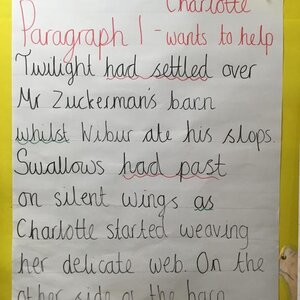 Charlotte
Paragraph 1 - wants to help
Twilight had settled over
Mr Zuckerman's barn
whilst Wilbur ate his slops.
Swallows had past
on silent wings as
Charlotte started weaving
her delicate web. On the
other side of the barn